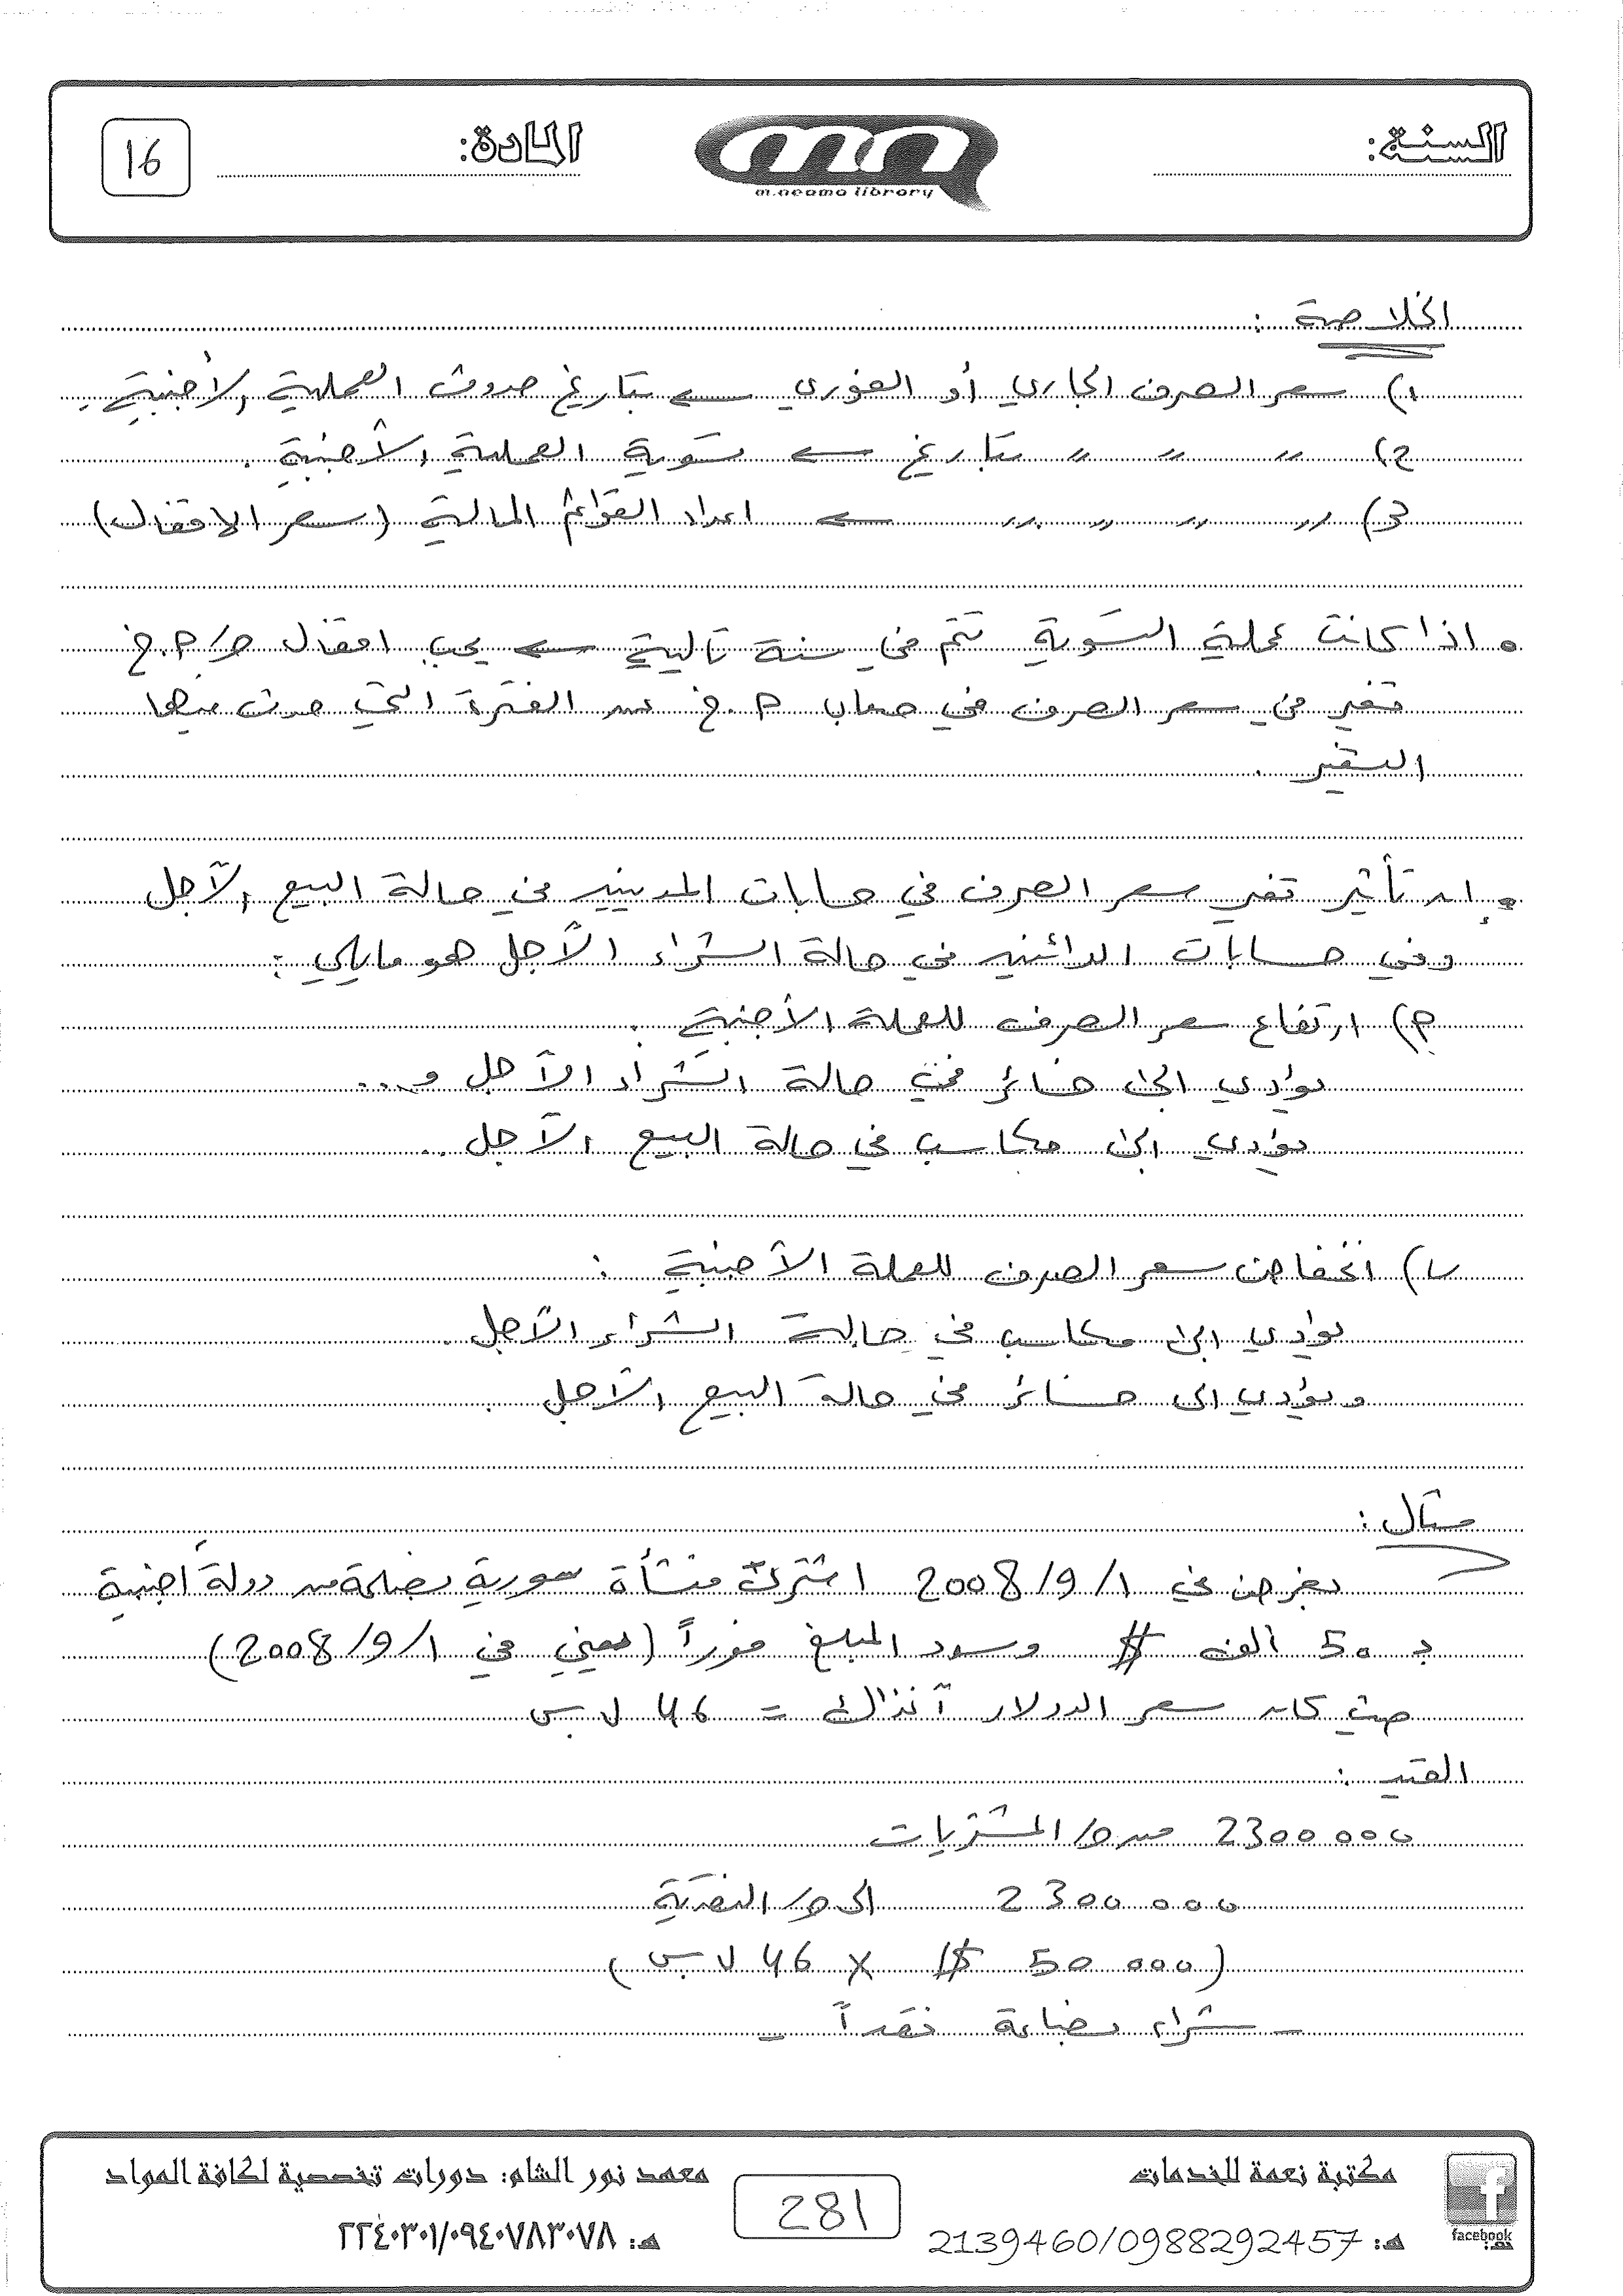 السنة:
المادة:
16
m.neama library
الخلاصة :
1) سعر الصرف الجاري أو الفوري ← بتاريخ حدوث العملية الأجنبية.
2) " " " بتاريخ ← تسوية العملية الأجنبية.
3) " " " " " ← اعداد القوائم المالية (سعر الاقفال)
• اذا كانت عملية التسوية تتم في سنة تالية ← يجب اقفال ح/ م.خ
تغير في سعر الصرف في حساب م.خ عن الفترة التي حدث فيها
التغير.
• إن تأثير تغير سعر الصرف في حسابات المدينين في حالة البيع الآجل
وفي حسابات الدائنين في حالة الشراء الآجل هو مايلي :
م) ارتفاع سعر الصرف للعملة الأجنبية .
يؤدي الى خسائر في حالة الشراء الآجل و...
يؤدي الى مكاسب في حالة البيع الآجل ..
ب) انخفاض سعر الصرف للعملة الأجنبية :
يؤدي الى مكاسب في حالة الشراء الآجل .
ويؤدي الى خسائر في حالة البيع الآجل .
مثال :
بفرض في 1/9/2008 اشترت منشأة سورية بضاعة من دولة أجنبية
بـ 50 ألف $ وسدد المبلغ فوراً (يعني في 1/9/2008)
حيث كان سعر الدولار آنذاك = 46 ل.س
القيد :
2300000 من ح/ المشتريات
2300000 الى ح/ النقدية
(50000 $ × 46 ل.س)
- شراء بضاعة نقداً -
مكتبة نعمة للخدمات
هـ: 2139460/0988292457
facebook
281
معهد نور الشام: دورات تخصصية لكافة المواد
هـ: ٢٢٤٠٣٠١/٠٩٤٠٧٨٣٠٧٨